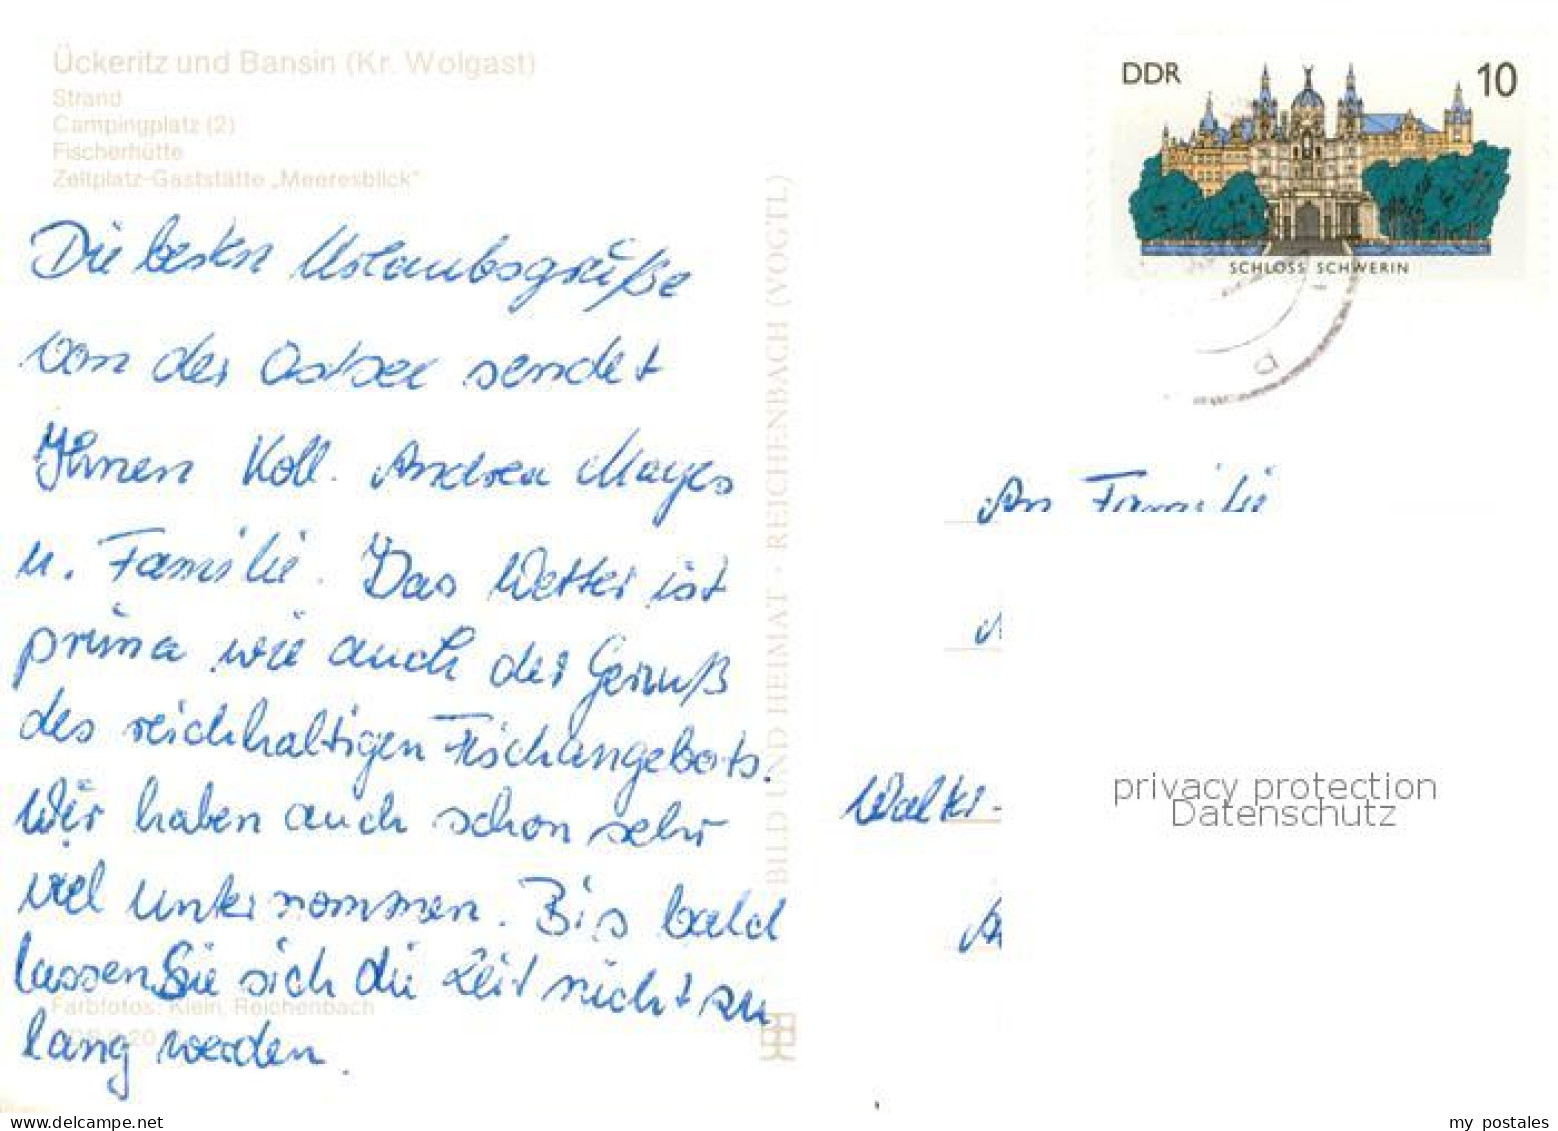 Ückeritz und Bansin (Kr. Wolgast)
Strand
Campingplatz (2)
Fischerhütte
Zeltplatz-Gaststätte „Meeresblick"
Die besten Urlaubsgrüße
von der Ostsee sendet
Ihnen Koll. Andrea Mayer
u. Familie. Das Wetter ist
prima wie auch der Genuß
des reichhaltigen Fischangebots.
Wir haben auch schon sehr
viel unternommen. Bis bald
lassen Sie sich die Zeit nicht zu
lang werden.
Farbfotos: Klein, Reichenbach
BILD UND HEIMAT · REICHENBACH (VOGTL)
DDR 10
SCHLOSS SCHWERIN
An Familie
Walter-
privacy protection
Datenschutz
my postales